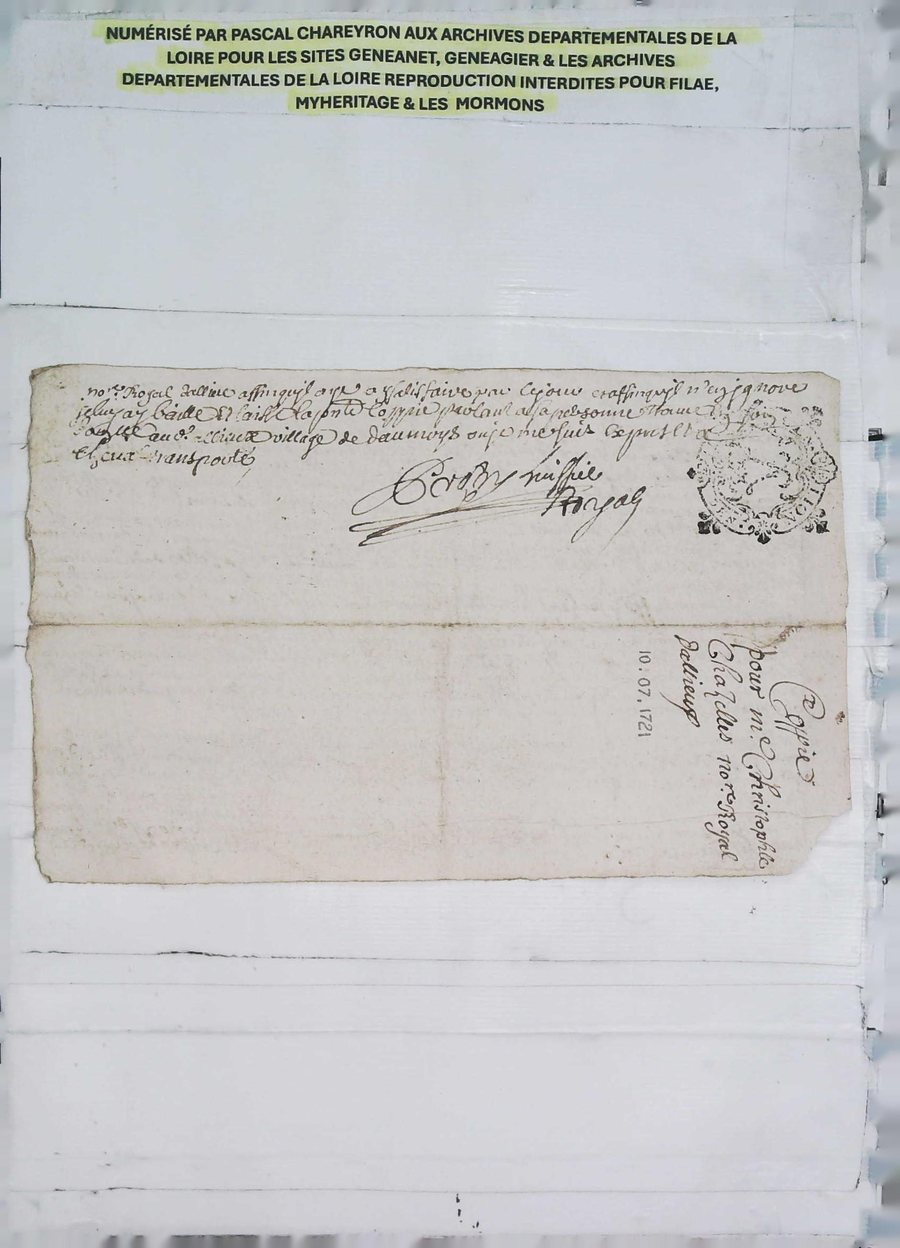 NUMÉRISÉ PAR PASCAL CHAREYRON AUX ARCHIVES DEPARTEMENTALES DE LA
LOIRE POUR LES SITES GENEANET, GENEAGIER & LES ARCHIVES
DEPARTEMENTALES DE LA LOIRE REPRODUCTION INTERDITES POUR FILAE,
MYHERITAGE & LES MORMONS
nore Royal affinquil aye a y satisfaire ce jour et affinquil n'en ignore
je luy ay baillé et laissé la pnte Coppie parlant a sa personne trouvé
village de daumoys ou je me suis exprest
transporté
huissie
Royal
Coppie
pour me Christophle
Chazelles nore Royal
dallieux
10.07.1721